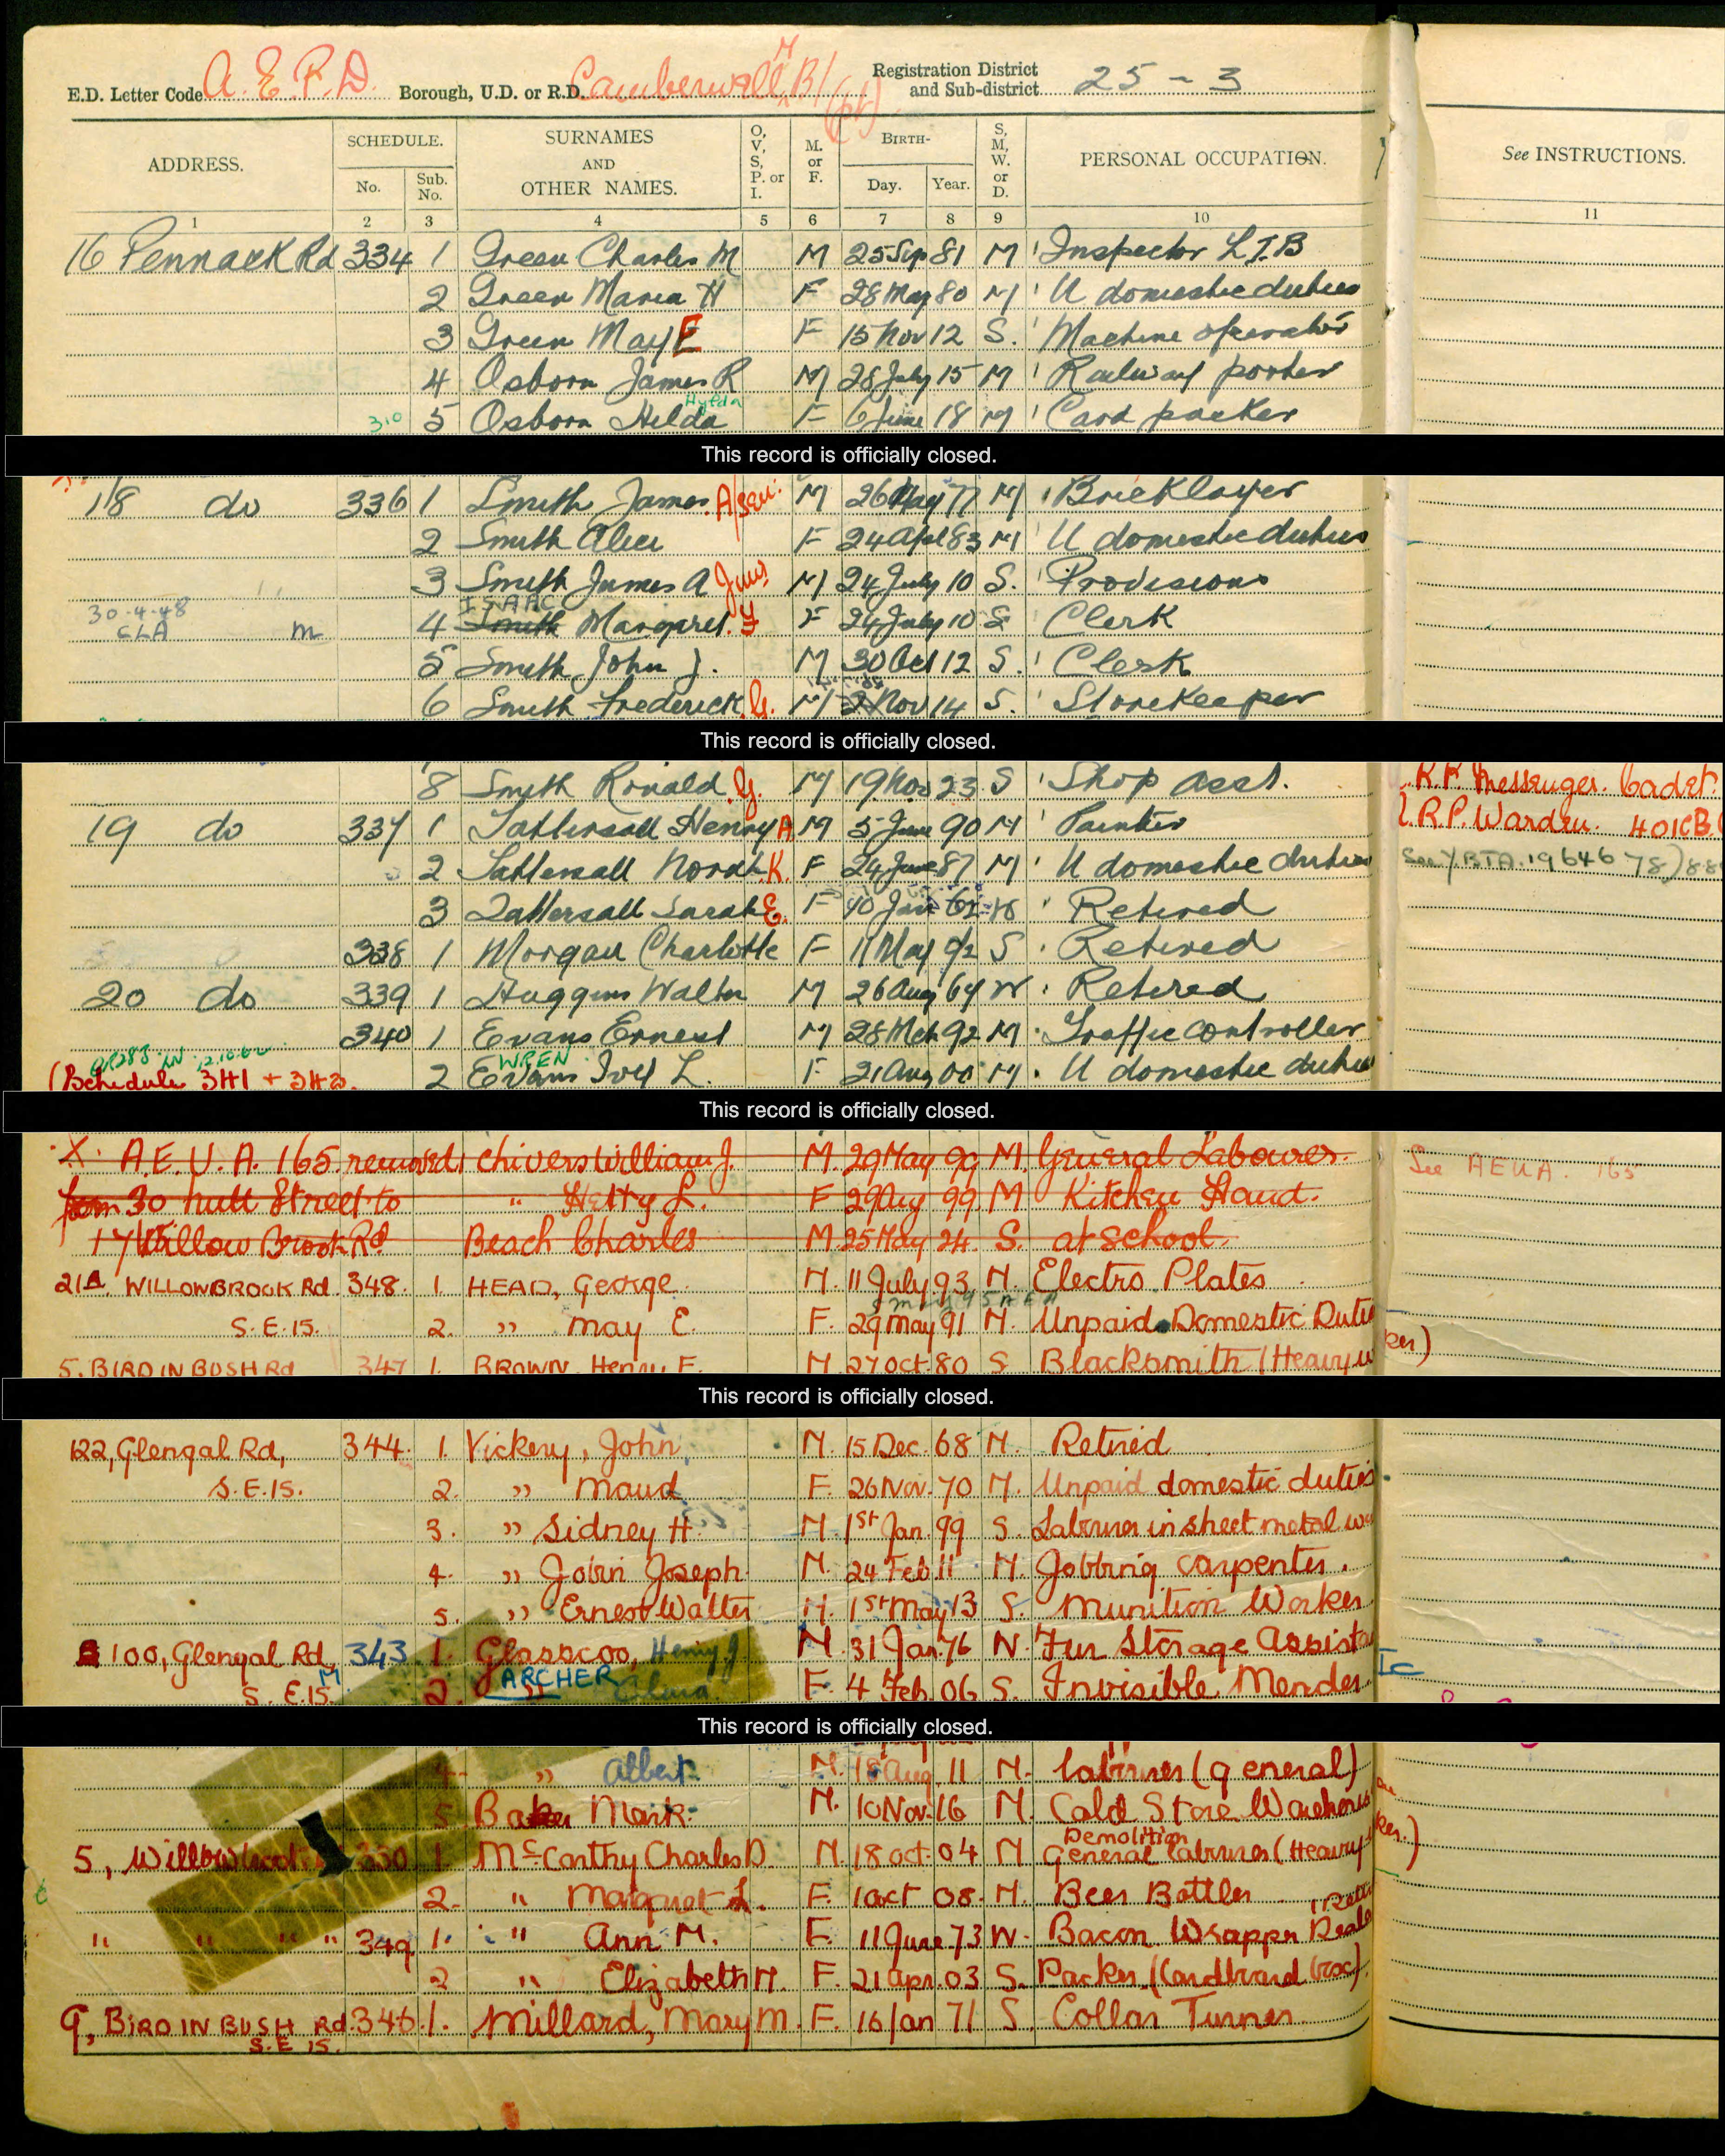 E.D. Letter Code A. E. P. D. Borough, U.D. or R.D. Camberwell M B/ (pt) Registration District and Sub-district 25 - 3
ADDRESS. SCHEDULE. No. Sub. No. SURNAMES AND OTHER NAMES. O, V, S, P. or I. M. or F. BIRTH- Day. Year. S, M, W. or D. PERSONAL OCCUPATION. See INSTRUCTIONS.
1 2 3 4 5 6 7 8 9 10 11
16 Pennack Rd 334 1 Green Charles M M 25 Sep 81 M Inspector L.T.B
2 Green Maria H F 28 May 80 M U domestic duties
3 Green May E F 15 Nov 12 S. Machine operator
4 Osborn James R M 28 July 15 M Railway porter
Hylda
310 5 Osborn Hilda F 6 June 18 M Card packer
This record is officially closed.
18 do 336 1 Smith James. A/sen: M 26 May 77 M Bricklayer
2 Smith Alice F 24 Apl 83 M U domestic duties
3 Smith James A Junr M 24 July 10 S. Provisions
30-4-48 ISAAC
CLA m 4 Smith Margaret. F 24 July 10 S Clerk
5 Smith John J. M 30 Oct 12 S. Clerk
6 Smith Frederick G. M 2 Nov 14 S. Storekeeper
This record is officially closed.
8 Smith Ronald G. M 19 Nov 23 S Shop asst. Messenger. Cadet.
19 do 337 1 Tattersall Henry A M 5 June 90 M Painter A.R.P. Warden. 401CB
2 Tattersall Norah K. F 24 June 87 M U domestic duties See YBTA. 19646 78)
3 Tattersall Sarah E. F 10 Jan 62 W Retired
338 1 Morgan Charlotte F 11 May 92 S Retired
20 do 339 1 Huggins Walter M 26 Aug 64 W Retired
340 1 Evans Ernest M 28 Mch 92 M Traffic controller
WREN 12.10.62
(Schedule 341 + 343. 2 Evans Ivy L. F 21 Aug 00 M U domestic duties
This record is officially closed.
X. A.E.U.A. 165 removed 1 Chivers William J. M. 29 May 99 M. General Labourer. See AEUA. 165
from 30 Nutt Street to " Hetty L. F 29 Aug 99 M Kitchen Hand.
17 Willow Brook Rd Beach Charles M. 25 May 24. S. at School.
21A WILLOWBROOK Rd. 348. 1. HEAD, George M. 11 July 93 M. Electro Plates
S.E.15. 2. " May E. F. 29 May 91 M. Unpaid Domestic Duties
5. BIRD IN BUSH Rd 347 1. BROWN, Henry F. M. 27 Oct. 80 S Blacksmith (Heavy w ker)
This record is officially closed.
122, Glengal Rd, 344. 1. Vickery, John M. 15 Dec. 68 M. Retired
S.E.15. 2. " Maud F. 26 Nov. 70 M. Unpaid domestic duties
3. " Sidney H. M. 1st Jan. 99 S. Labourer in sheet metal wo
4. " John Joseph M. 24 Feb 11 M. Jobbing carpenter.
5. " Ernest Walter M. 1st May 13 S. Munition Worker
100, Glengal Rd, 343 1. Glasscoo, Henry J M. 31 Jan. 76 M. Fur Storage Assista
S.E.15. M 2. ARCHER F. 4 Feb. 06 S. Invisible Mender.
This record is officially closed.
4. " Albert M. 18 Aug. 11 M. Labourer (general)
5 Baker Mark. M. 10 Nov. 16 M. Cold Store Warehous
Demolition
5, Willowbrook 350 1. McCarthy Charles D. M. 18 Oct. 04 M General Labourer (Heavy ker.)
2. " Margaret L. F. 1 Oct 08. M. Beer Bottler
" " " " 349 1. " Ann M. F. 11 June 73 W. Bacon Wrapper
2 " Elizabeth M. F. 21 Apr. 03 S. Packer (Cardboard box).
9, BIRD IN BUSH Rd. 346 1. Millard, Mary M. F. 16 Jan 71 S. Collar Turner.
S.E 15.